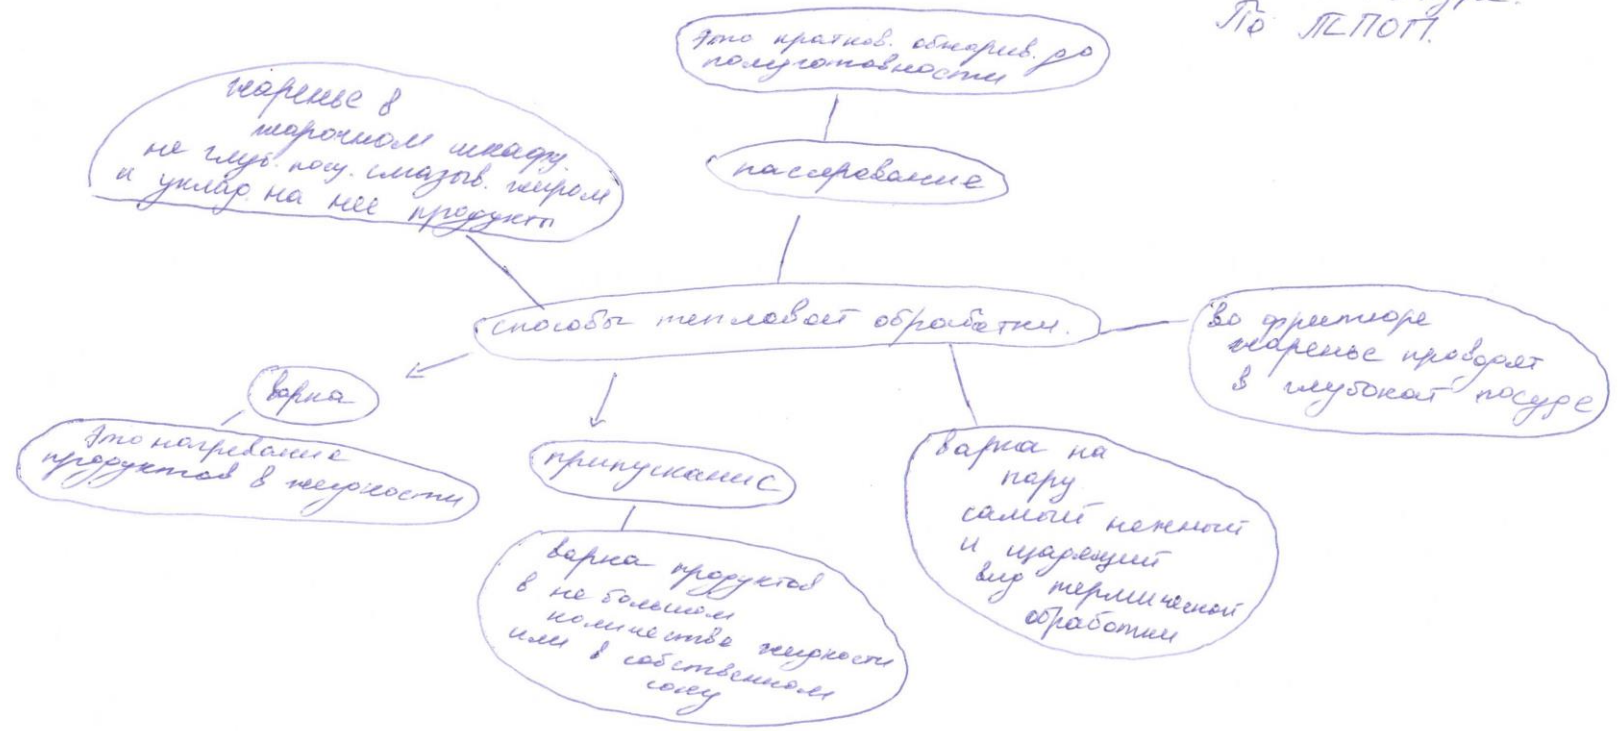 По ТПОП.
Это кратков. обжарив. до
полуготовности
пассерование
жаренье в
жарочном шкафу.
не глуб. посу. смазыв. жиром
и уклад. на нее продукты
способы тепловой обработки.
во фритюре
жаренье проводят
в глубокой посуде
варка
Это нагревание
продуктов в жидкости
припускание
варка продуктов
в не большом
количества жидкости
или в собственном
соку
варка на
пару
самый нежный
и щадящий
вид термической
обработки